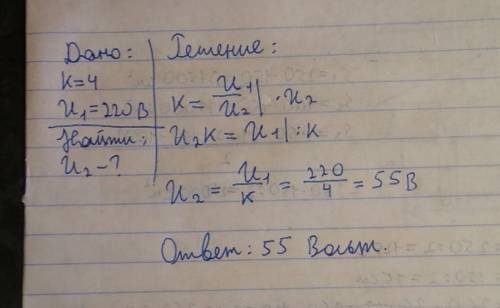 Дано:
К=4
U₁=220В
Найти:
U₂-?
Решение:
К = U₁/U₂ | · U₂
U₂К = U₁ | : К
U₂ = U₁/К = 220/4 = 55В
Ответ: 55 Вольт.